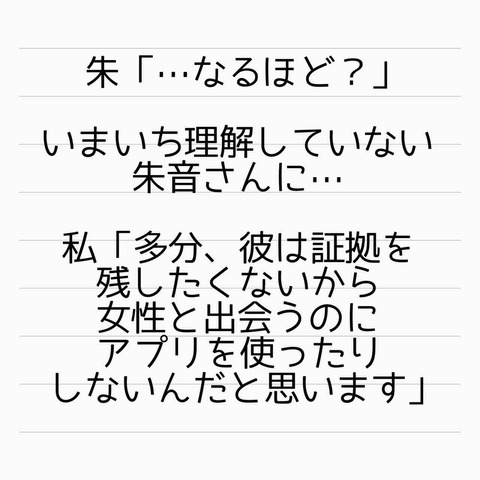 朱「…なるほど？」
いまいち理解していない
朱音さんに…
私「多分、彼は証拠を
残したくないから
女性と出会うのに
アプリを使ったり
しないんだと思います」